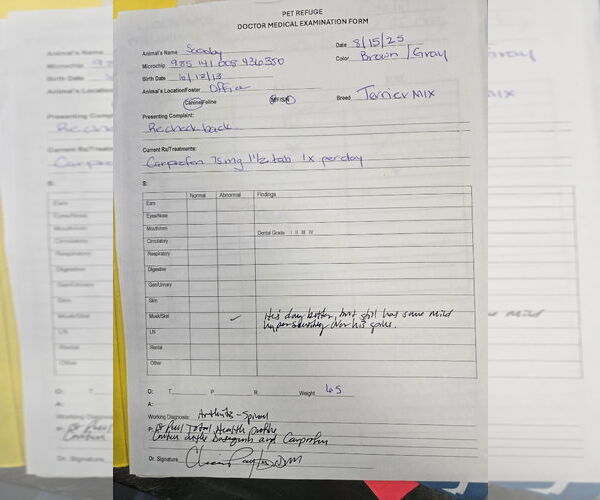 PET REFUGE
DOCTOR MEDICAL EXAMINATION FORM
Animal's Name Scooby Date 8/15/25
Microchip 985 141 008 436380 Color Brown / Gray
Birth Date 6/12/13
Animal's Location/Foster Office
Canine/Feline M/F/S/N Breed Terrier Mix
Presenting Complaint:
Recheck back
Current Rx/Treatments:
Carprofen 75mg 1½ tab 1x per day
S:
Normal Abnormal Findings
Ears
Eyes/Nose
Mouth/mm Dental Grade I II III IV
Circulatory
Respiratory
Digestive
Gen/Urinary
Skin
Musk/Skil ✓ He's doing better, but still has some mild
hypersensitivity over his spine.
LN
Rectal
Other
O: T P R Weight 45
A:
Working Diagnosis: Arthritis - Spinal
P: Total Health profile
Continue and Carprofen
Dr. Signature DVM